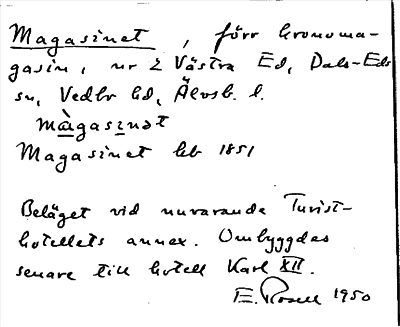 Magasinet, förr kronoma-
gasin, nr 2 Västra Ed, Dals-Eds
sn, Vedbo hd, Älvsb. l.
màgasinət
Magasinet hb 1851
Beläget vid nuvarande Turist-
hotellets annex. Ombyggdes
senare till hotell Karl XII.
E. Rosell 1950